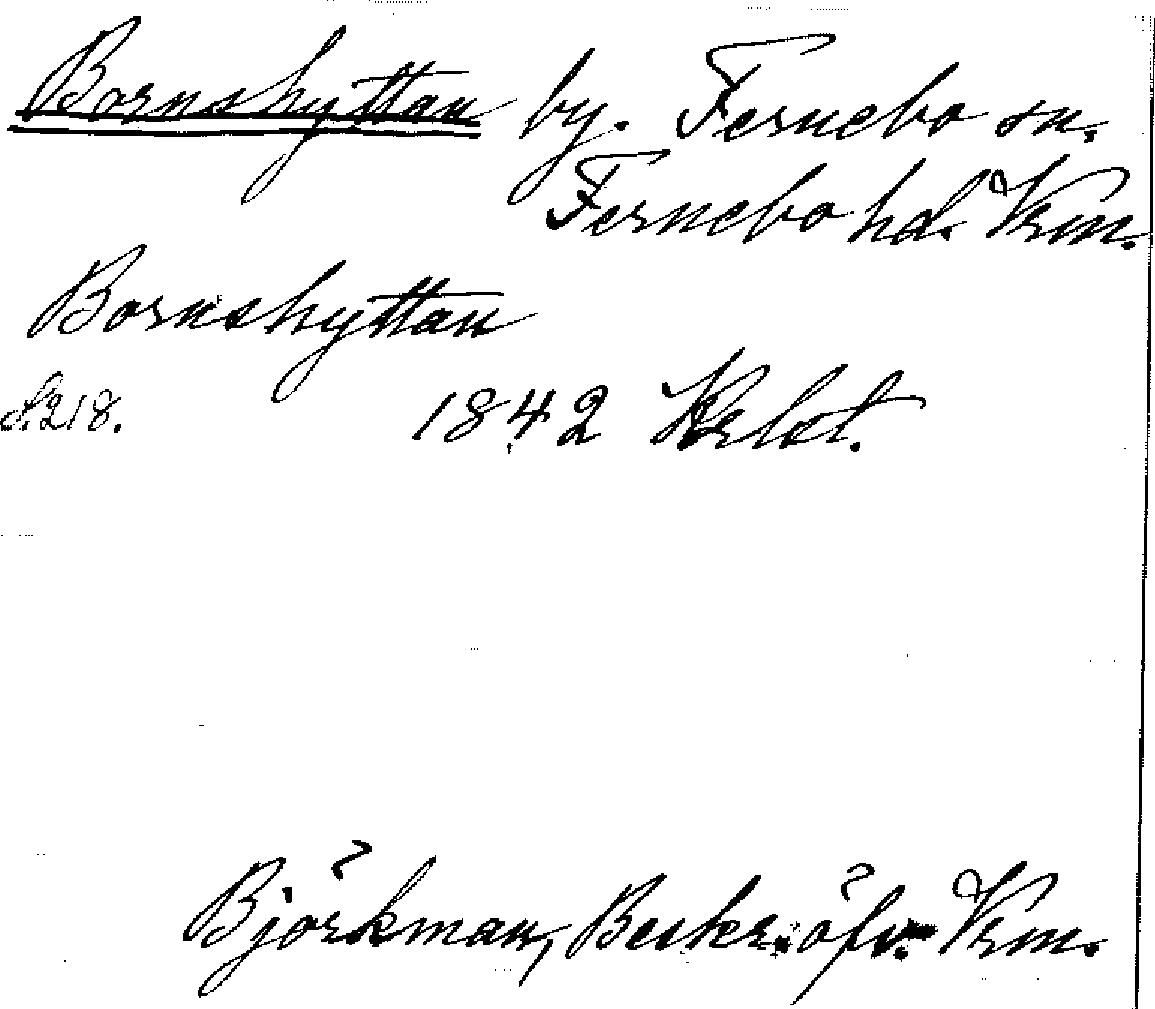 Bornshyttan by. Fernebo sn.
Fernebo hd. Vrm.
Bornshyttan
S. 218. 1842 Krlst.
Björkman, Beskr. öfv. Vrm.